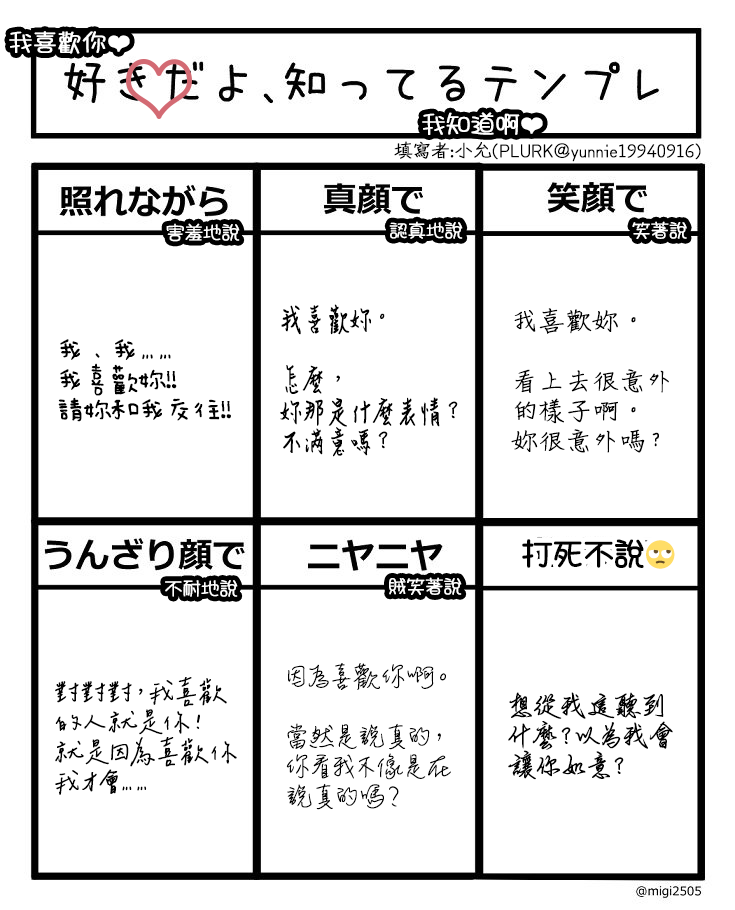 我喜歡你❤
好きだよ、知ってるテンプレ
我知道啊❤
填寫者:小允(PLURK@yunnie19940916)
照れながら
害羞地說
我、我……
我喜歡妳!!
請妳和我交往!!
真顔で
認真地說
我喜歡妳。
怎麼，
妳那是什麼表情？
不滿意嗎？
笑顔で
笑著說
我喜歡妳。
看上去很意外
的樣子啊。
妳很意外嗎？
うんざり顔で
不耐地說
對對對，我喜歡
的人就是你！
就是因為喜歡你
我才會……
ニヤニヤ
賊笑著說
因為喜歡你啊。
當然是說真的，
你看我不像是在
說真的嗎？
打死不說🙄
想從我這聽到
什麼？以為我會
讓你如意？
@migi2505